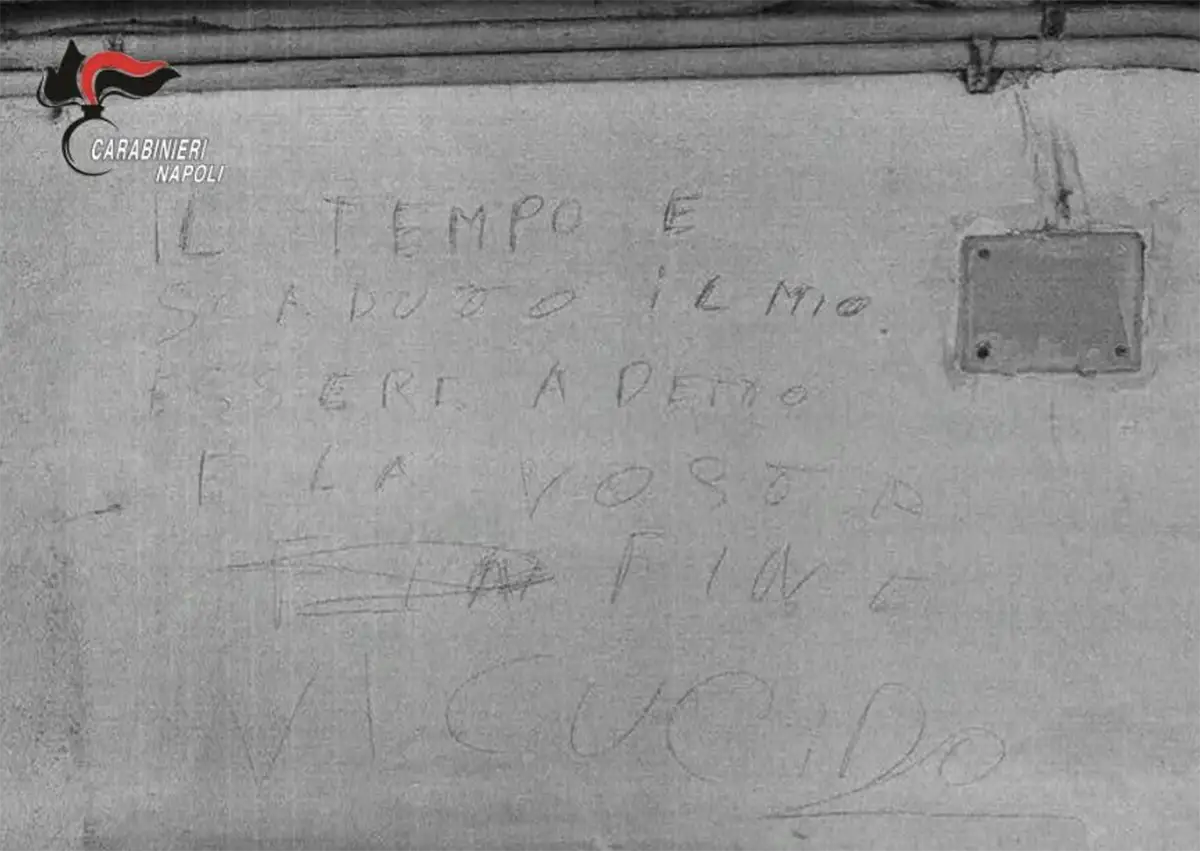 CARABINIERI
NAPOLI
IL TEMPO E
SCADUTO IL MIO
ESSERE A DEMO
E LA VOSTA
FINE
VI CUCIDO